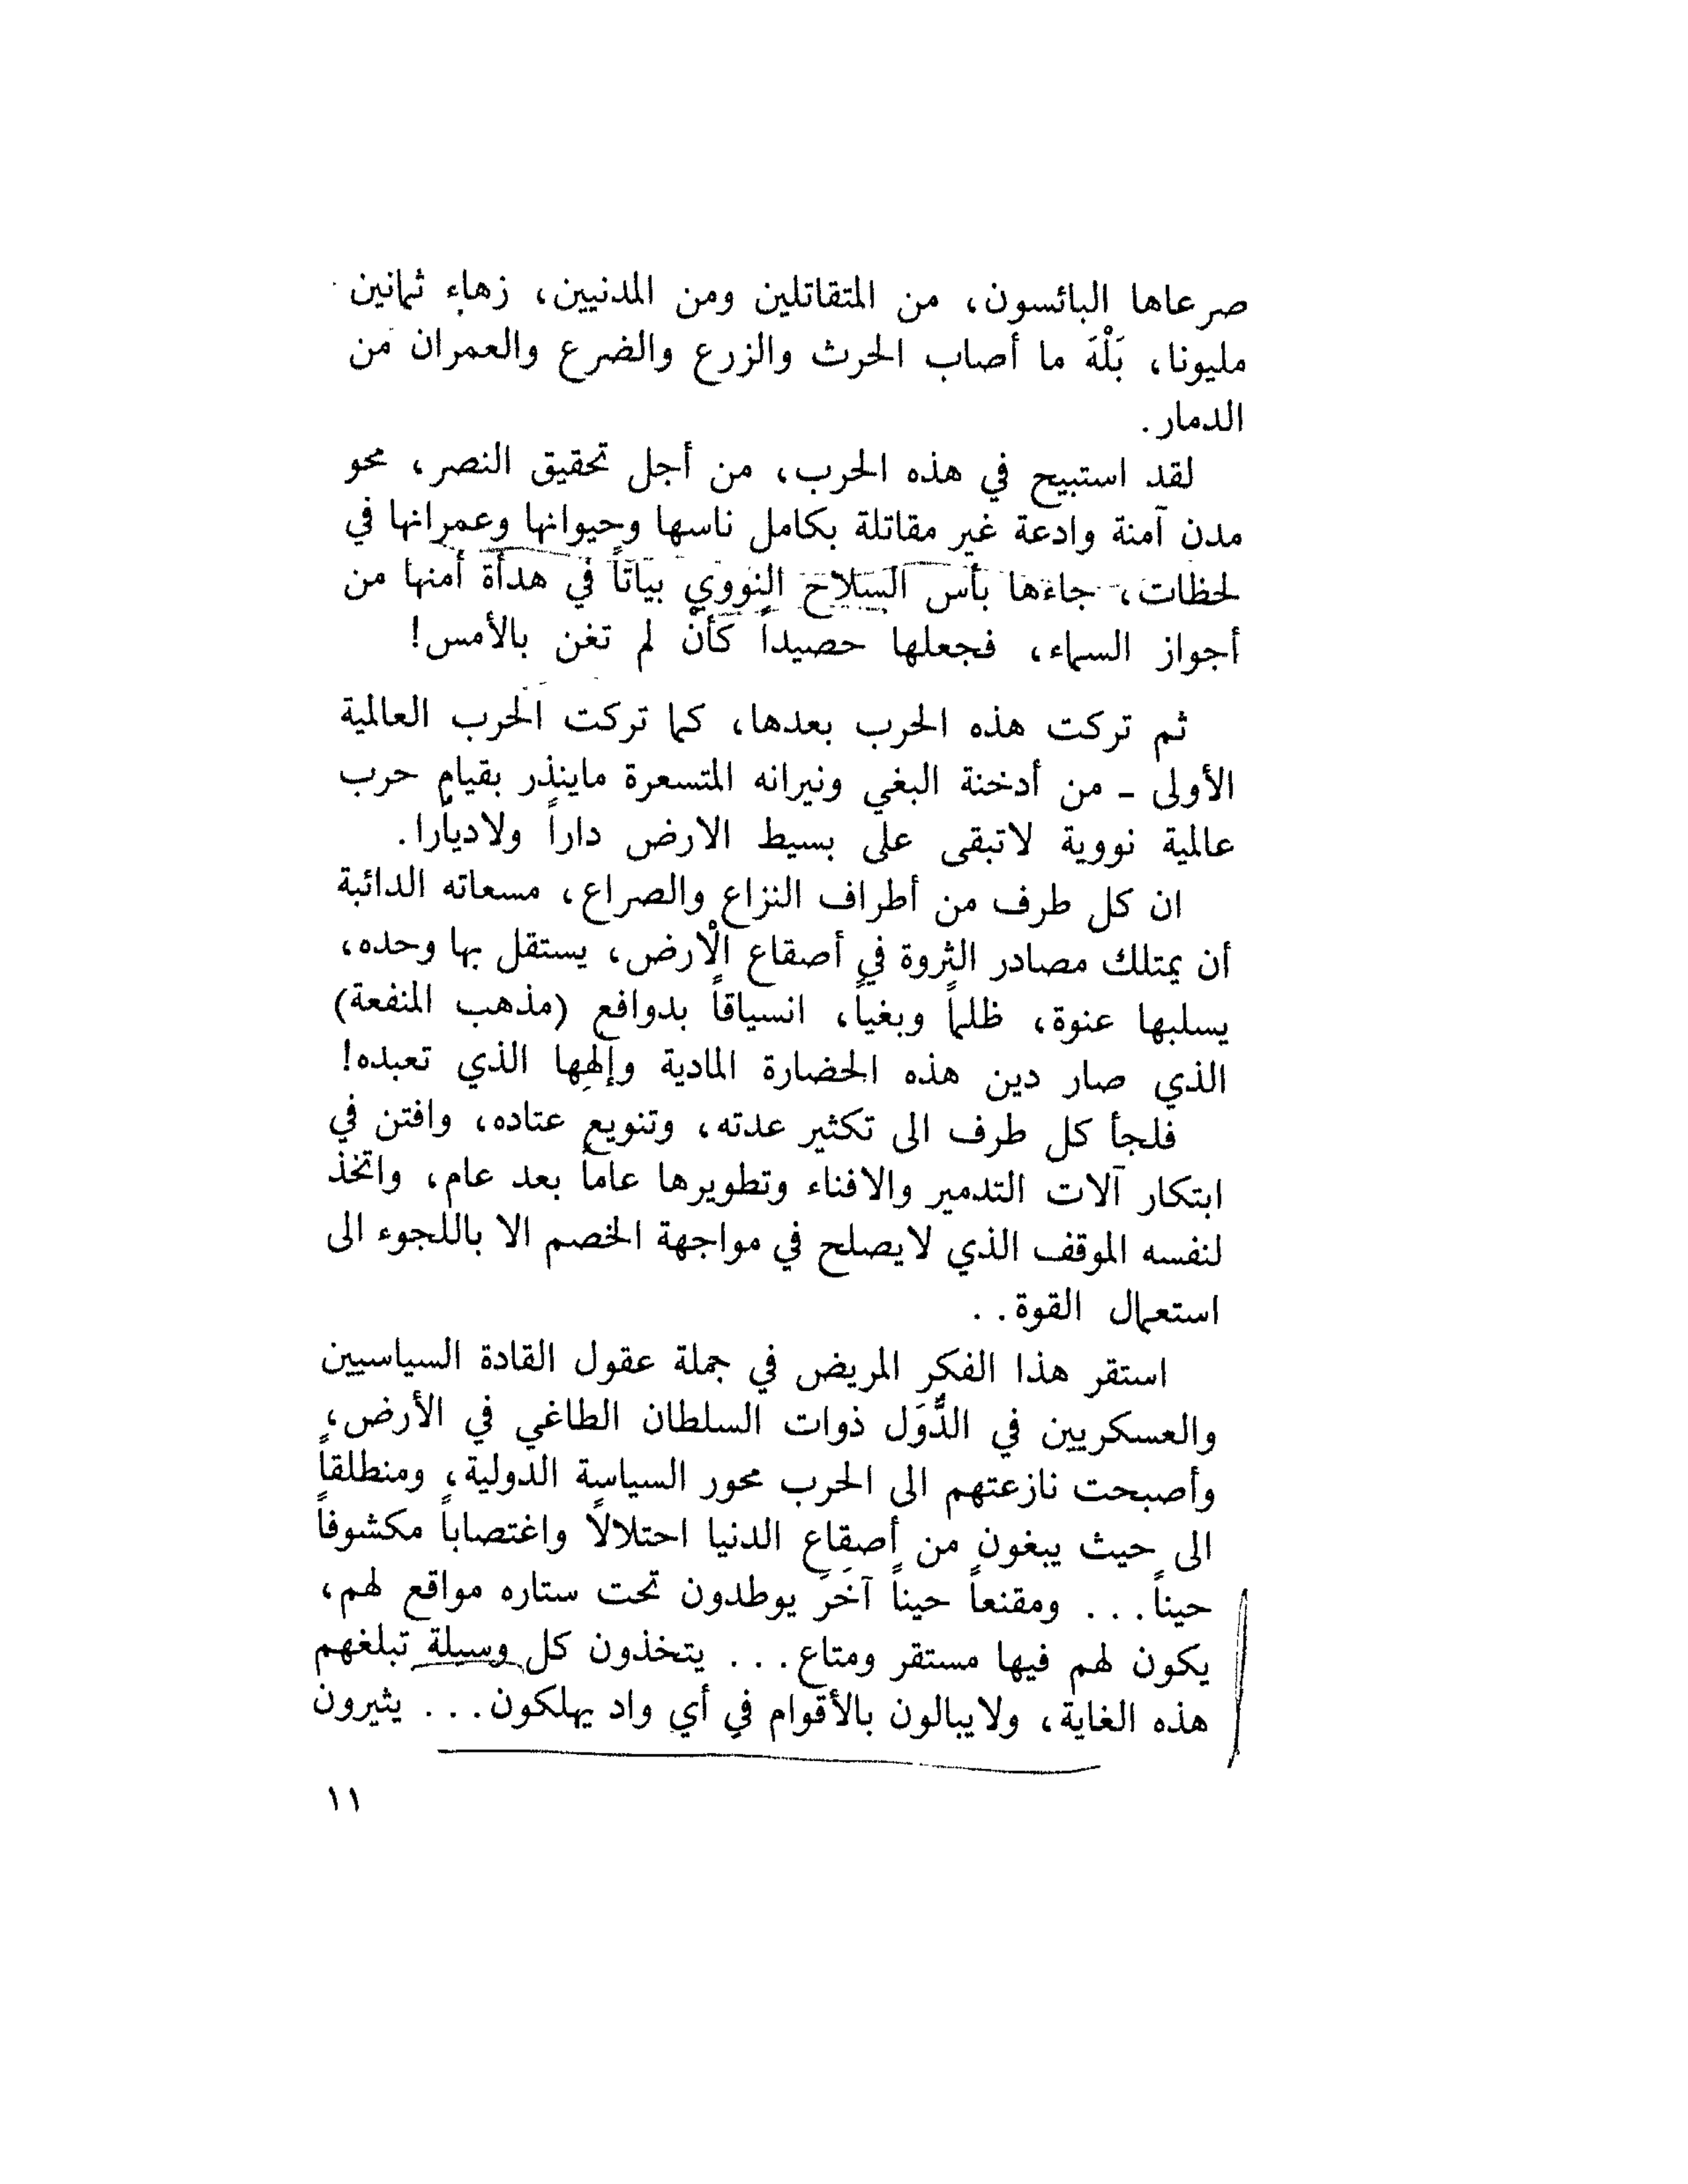 صرعاها البائسون، من المتقاتلين ومن المدنيين، زهاء ثمانين
مليونا، بَلْهَ ما أصاب الحرث والزرع والضرع والعمران من
الدمار.
لقد استبيح في هذه الحرب، من أجل تحقيق النصر، محو
مدن آمنة وادعة غير مقاتلة بكامل ناسها وحيوانها وعمرانها في
لحظات، جاءها بأس السلاح النووي بياتاً في هدأة أمنها من
أجواز السماء، فجعلها حصيداً كأنْ لم تغن بالأمس!
ثم تركت هذه الحرب بعدها، كما تركت الحرب العالمية
الأولى - من أدخنة البغي ونيرانه المتسعرة ماينذر بقيام حرب
عالمية نووية لاتبقى على بسيط الارض داراً ولاديارا.
ان كل طرف من أطراف النزاع والصراع، مسعاته الدائبة
أن يمتلك مصادر الثروة في أصقاع الْأرض، يستقل بها وحده،
يسلبها عنوة، ظلماً وبغياً، انسياقاً بدوافع (مذهب المنفعة)
الذي صار دين هذه الحضارة المادية وإلهِها الذي تعبده!
فلجأ كل طرف الى تكثير عدته، وتنويع عتاده، وافتن في
ابتكار آلات التدمير والافناء وتطويرها عاماً بعد عام، واتخذ
لنفسه الموقف الذي لايصلح في مواجهة الخصم الا باللجوء الى
استعمال القوة..
استقر هذا الفكر المريض في جملة عقول القادة السياسيين
والعسكريين في الدُّوَل ذوات السلطان الطاغي في الأرض،
وأصبحت نازعتهم الى الحرب محور السياسة الدولية، ومنطلقاً
الى حيث يبغون من أصقاع الدنيا احتلالاً واغتصاباً مكشوفاً
حيناً... ومقنعاً حيناً آخَرَ يوطدون تحت ستاره مواقع لهم،
يكون لهم فيها مستقر ومتاع... يتخذون كل وسيلة تبلغهم
هذه الغاية، ولايبالون بالأقوام في أي واد يهلكون... يثيرون
١١